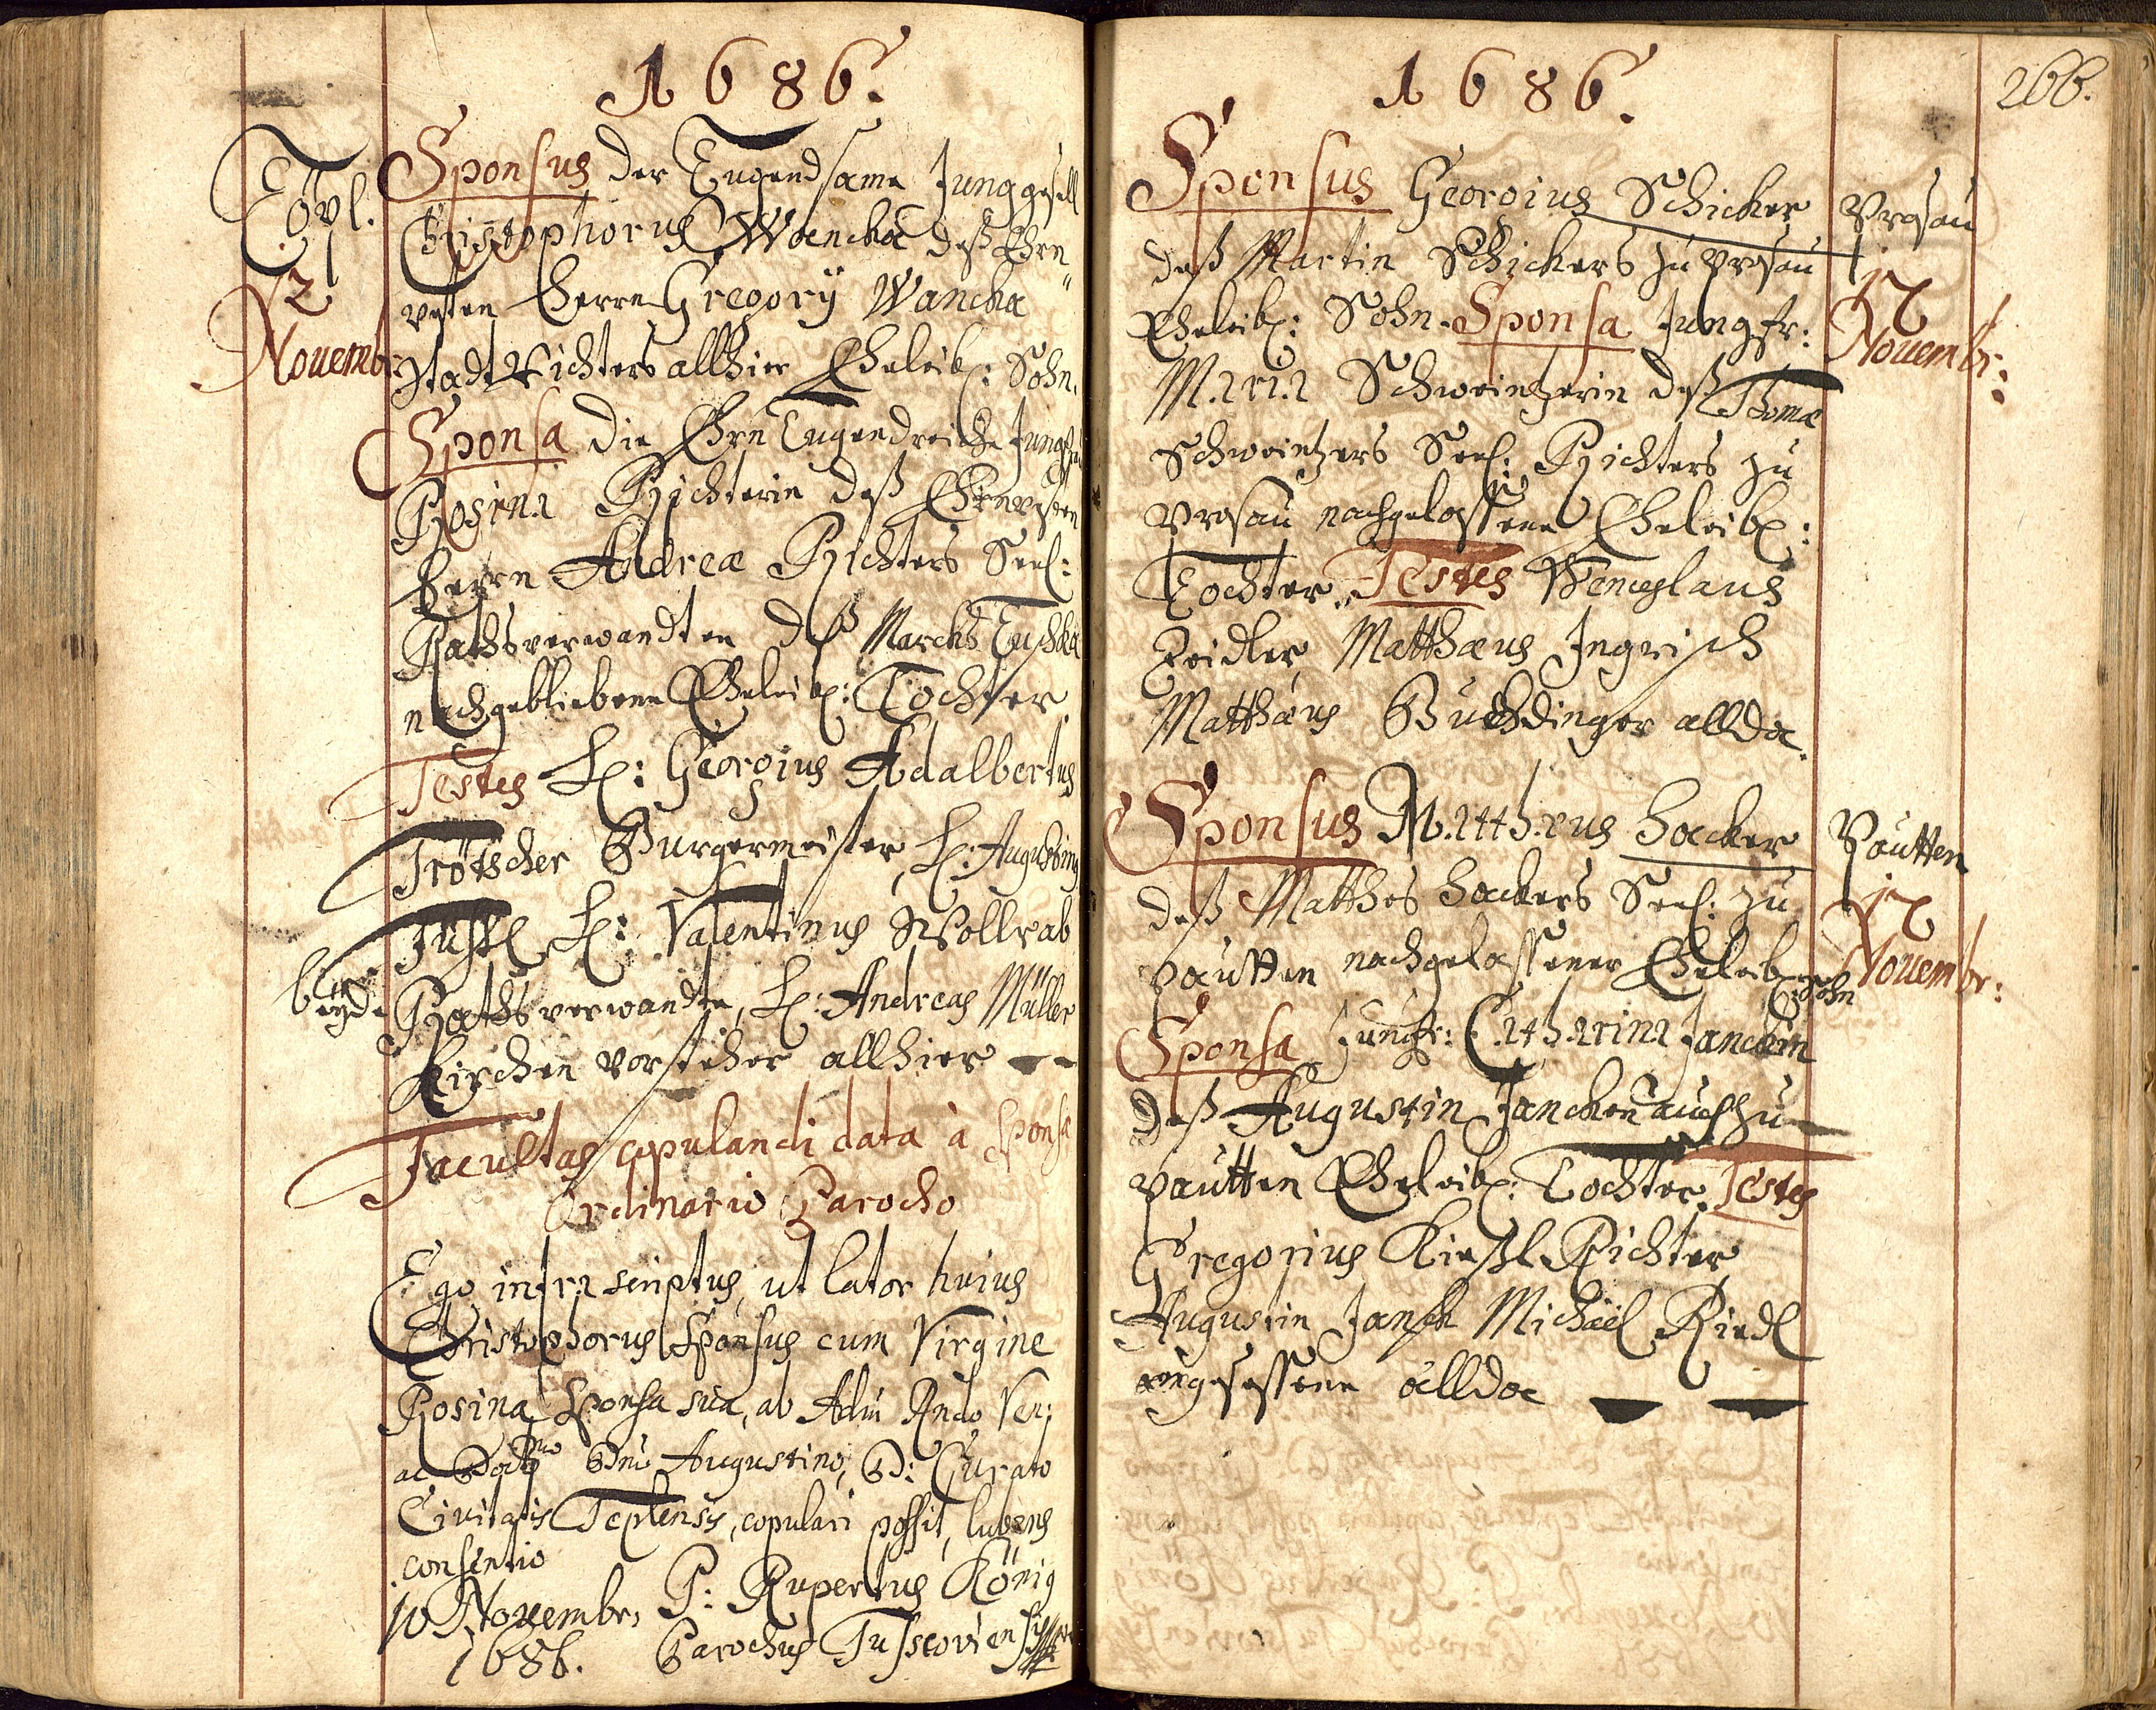 1686.
Töpl.
12
Novembr:
Sponsus der Tugendsame Junggesell
Christophorus Wancka deß Ehrn
vesten Herrn Gregorÿ Wancka
Stadt Richters allhier Eheleibl: Sohn.
Sponsa die Ehrn Tugendreiche Jungfr
Rosina Richterin deß Ehrnvesten
Herrn Andreæ Richters Seel:
Rathsverwandten deß Marckts Tuschka
nachgebliebene Eheleibl: Tochter
Testes H: Georgius Adalbertus
Trötscher Burgermeister, H: Augustinus
H: Valentinus Wollrab
beÿde Rathsverwandte, H: Andreas Müller
Kirchen vorsteher allhier
Facultas copulandi data à Sponsæ
Ordinario Parocho
Ego infra scriptus, ut lator huius
Christophorus Sponsus cum Virgine
Rosina Sponsa sua, ab Adm Rndo Ven:
ac Dno Augustino, Curato
Civitatis Teplensis, copulari possit, lubens
consentio
10 Novembr: P: Rupertus König
1686. Parochus Tuscoviensis
1686.
266.
Sponsus Georgius Schicker
deß Martin Schickers zu Prosau
Eheleibl: Sohn. Sponsa Jungfr:
Maria Schweintzerin deß Thomæ
Schweintzers Seel: Richters zu
Prosau nachgelassene Eheleibl:
Tochter, Testes Wenceslaus
Zeidler, Matthæus Ingrisch
Matthæus Buchdinger allda.
Prosau
12
Novembr:
Sponsus Matthæus Hacker
deß Matthes Hackers Seel: zu
Pautten nachgelassener Eheleibl: Sohn
Sponsa Jungfr: Catharina Janckin
deß Augustin Jancken auch zu
Pautten Eheleibl: Tochter. Testes
Gregorius Kießl Richter
Augustin Michäel Riedl
angesessene allda
Pautten
12
Novembr: